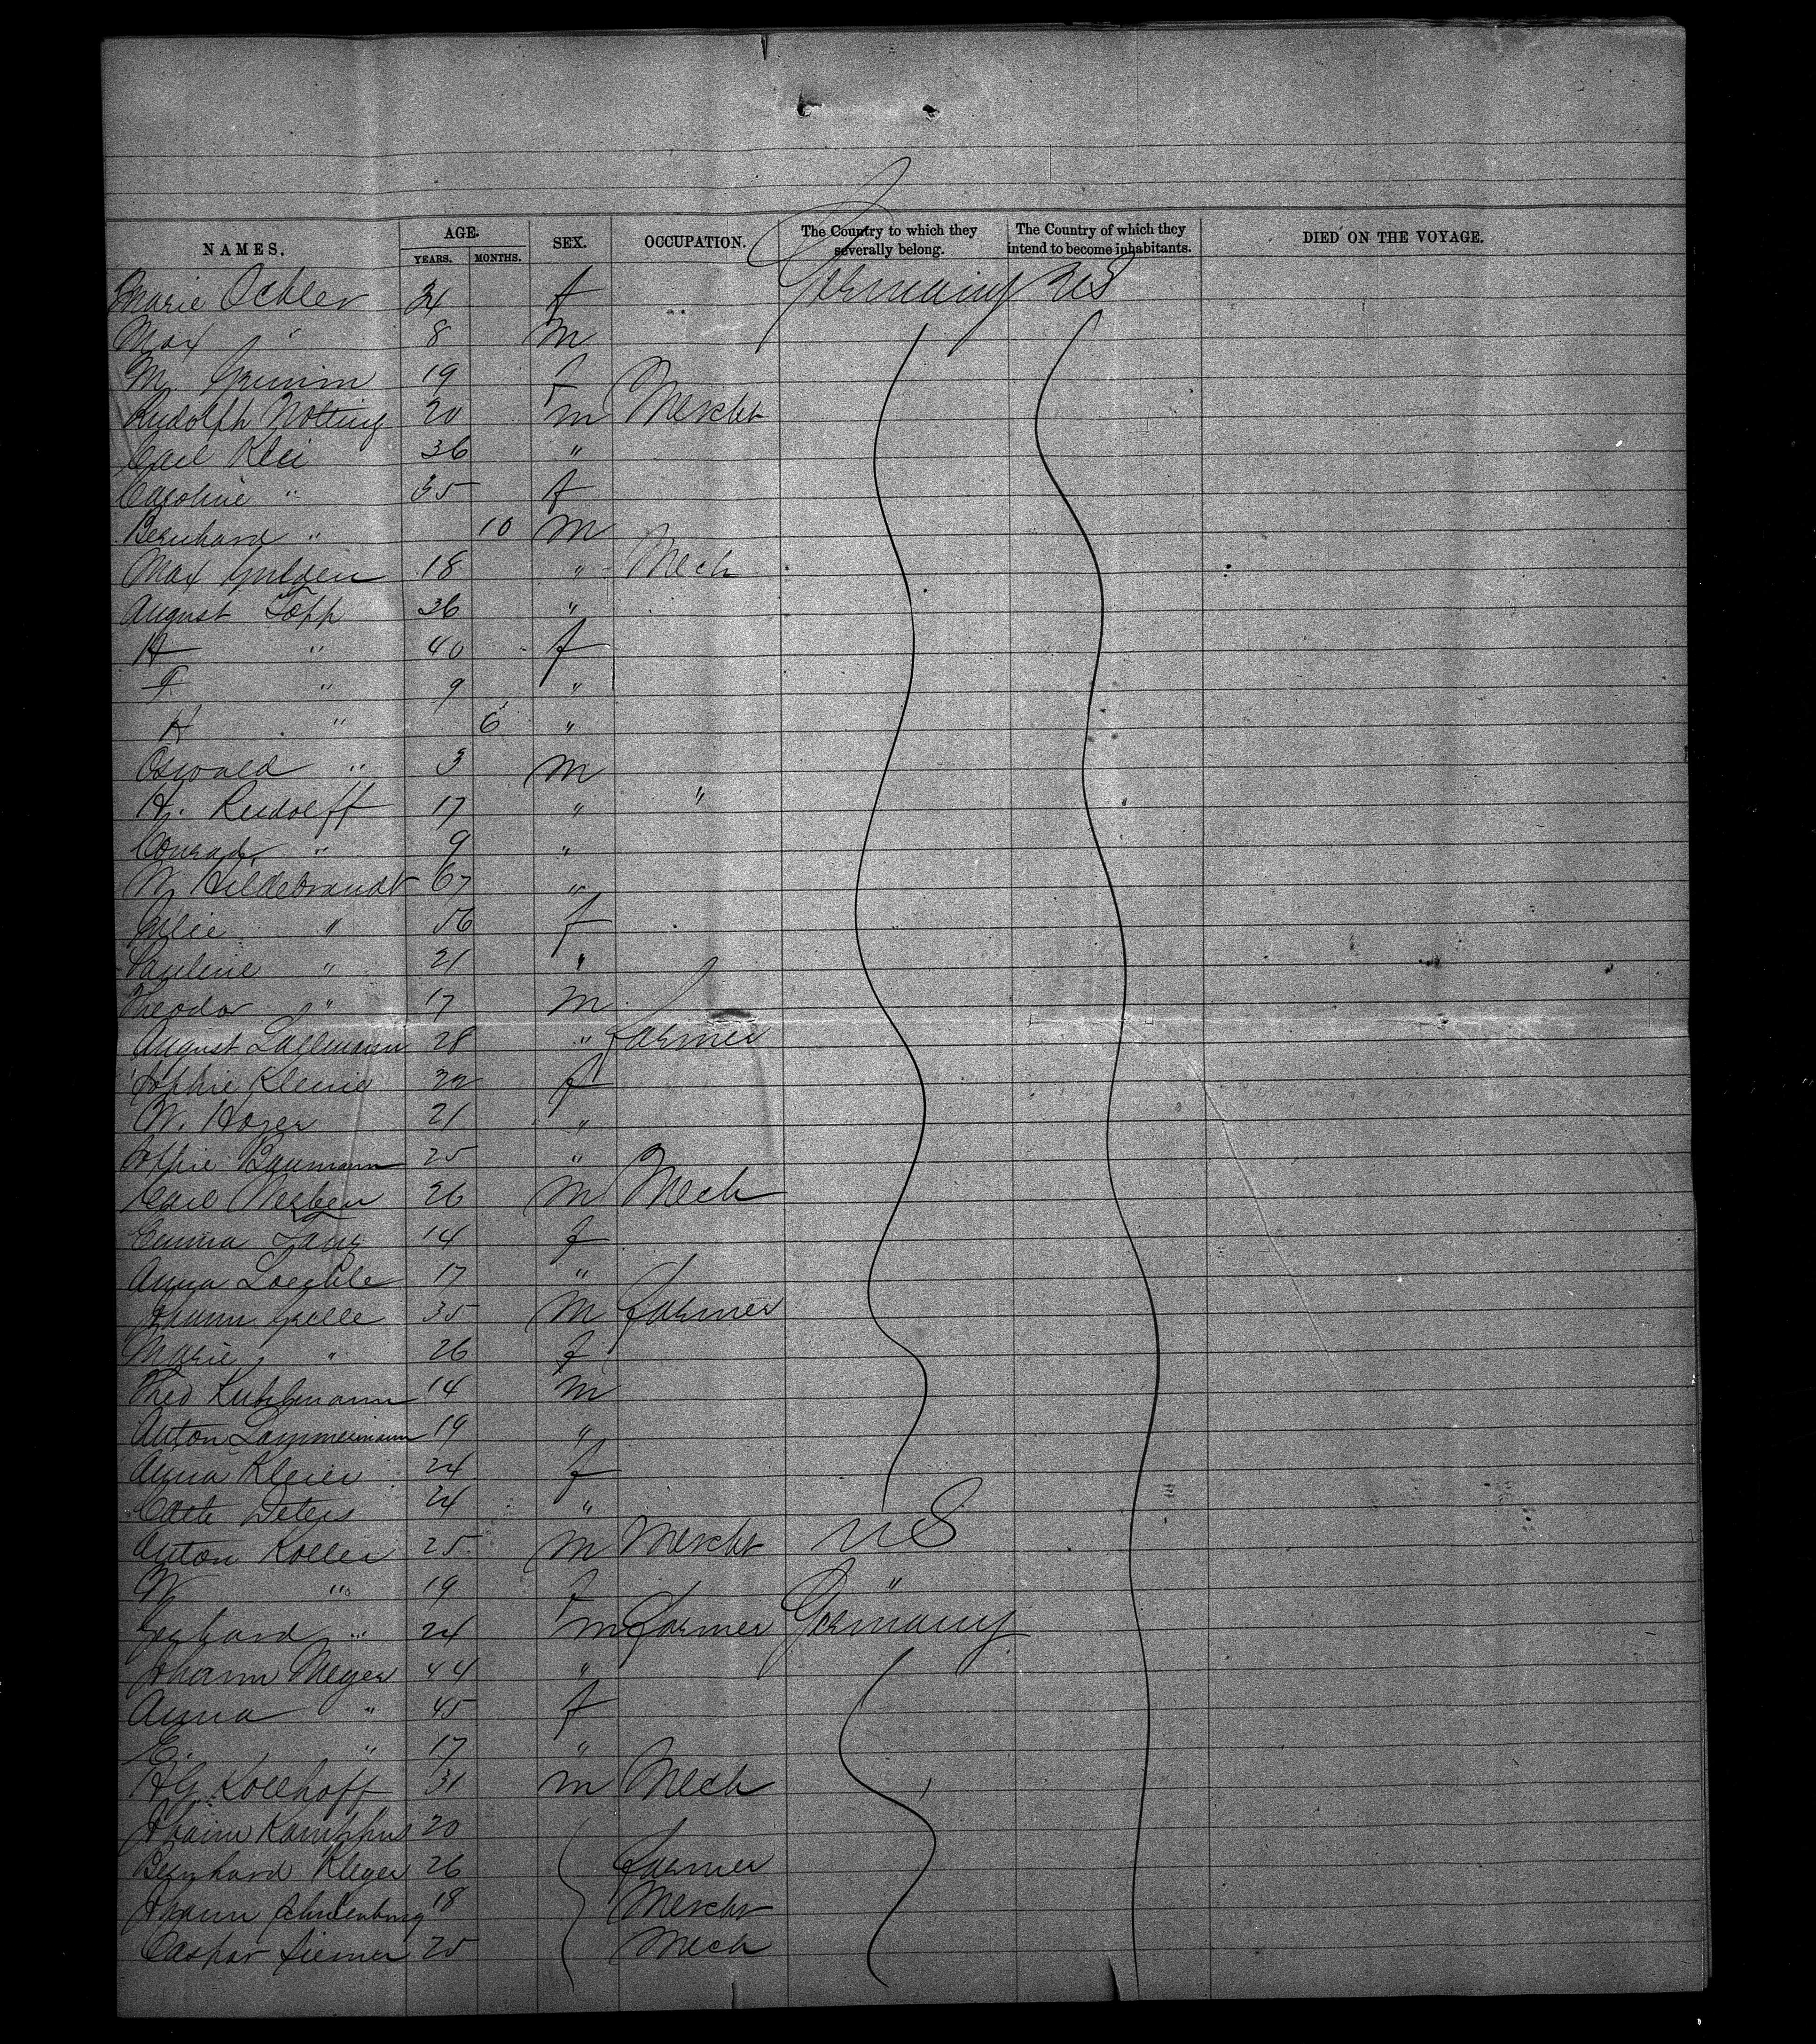 NAMES. AGE. SEX. OCCUPATION. The Country to which they severally belong. The Country of which they intend to become inhabitants. DIED ON THE VOYAGE.
YEARS. MONTHS.
Marie Oehler 34 f Germany US
Max " 8 m
M. Grimm 19 f
Rudolph Nolting 20 m Mercht
Carl Klei 36 "
Caroline " 35 f
Bernhard " 10 m
Max Gulden 18 " Mech
August Topp 36 "
H " 40 f
F. " 9 "
H " 6 "
Oswald " 3 m
H. Rudolff 17 " "
Conrad " 9 "
W Hildebrandt 67 "
" 56 f
Pauline " 21 "
Theodor " 17 m
August 28 " Farmer
Sophie 22 f
W. Hoser 21 "
Sophie Baumann 25 "
Carl 26 m Mech
Emma 14 f
Anna 17 "
Johann Grelle 35 m Farmer
Marie " 26 f
Theo Kuhlmann 14 m
Anton Lammermann 19 "
Anna Kleier 24 f
Cath Deters 24 "
Anton Koller 25 m Mercht US
W " 19 f "
Gerhard " 24 m Farmer Germany
Johann Meyer 44 "
Anna " 45 f
E. " 17 "
HG Kollhoff 31 m Mech
Johann Kamphus 20
Bernhard Kleyer 26 Farmer
Johann 18 Mercht
Caspar Siemer 25 Mech